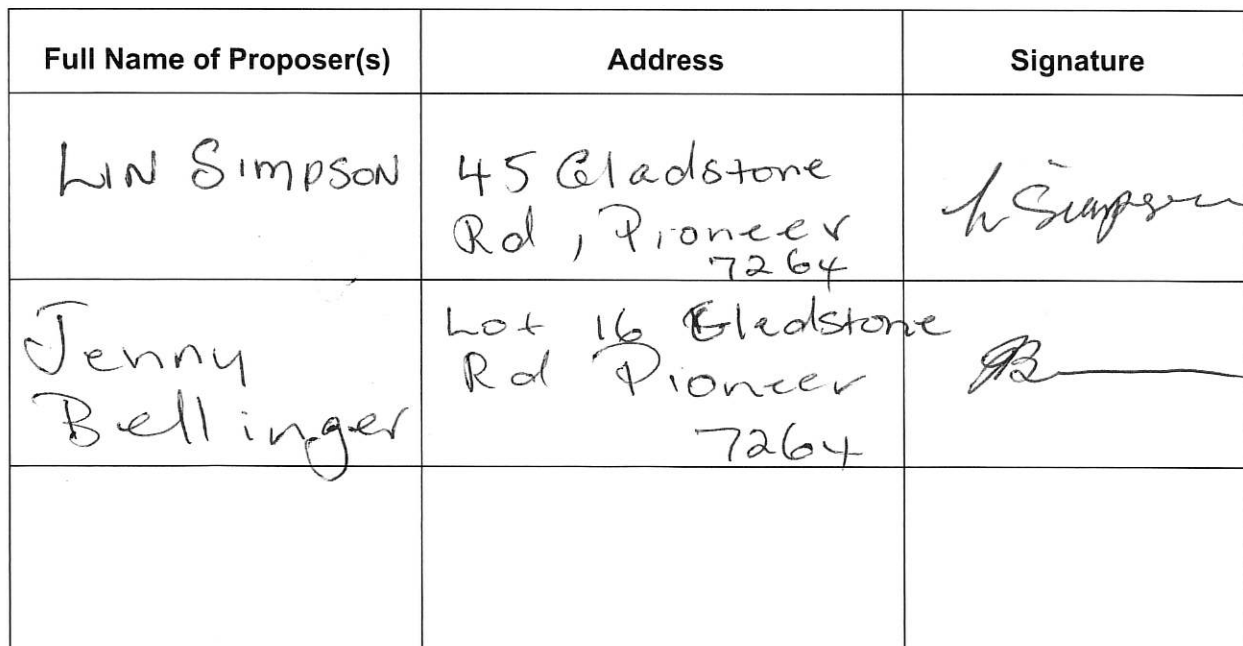 Full Name of Proposer(s) Address Signature
LIN SIMPSON
45 Gladstone
Rd, Pioneer
7264
L Simpson
Jenny
Bellinger
Lot 16 Gladstone
Rd Pioneer
7264
JB